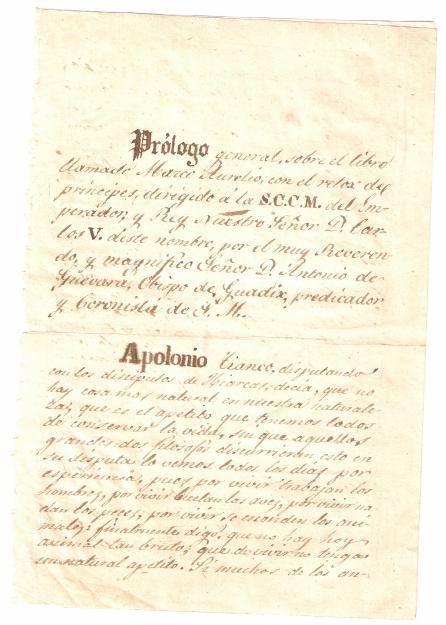 Prólogo general, sobre el libro
llamado Marco Aurelio, con el relox de
principes, dirigido á la S.C.C.M. del Im-
perador, y Rey Nuestro Señor D. Car-
los V. deste nombre, por el muy Reveren-
do, y magnifico Señor D. Antonio de
Guevara, Obispo de Guadix, predicador
y Coronista de S. M.
Apolonio Tianeo, disputando
con los discipulos de Hiarcas, decia, que no
hay cosa mas natural en nuestra naturale-
za, que es el apetito que tenemos todos
de conservar la vida, sin que aquellos
grandes dos filosofos discurrieran, esto en
su disputa lo vemos todos los dias por
esperiencia, pues por vivir trabajan los
hombres, por vivir buelan las aves, por vivir na-
dan los peces, por vivir se esconden los ani-
males: finalmente digo, que no hay hoy
animal tan bruto, que de vivir no tenga
un natural apetito. Si muchos de los an-